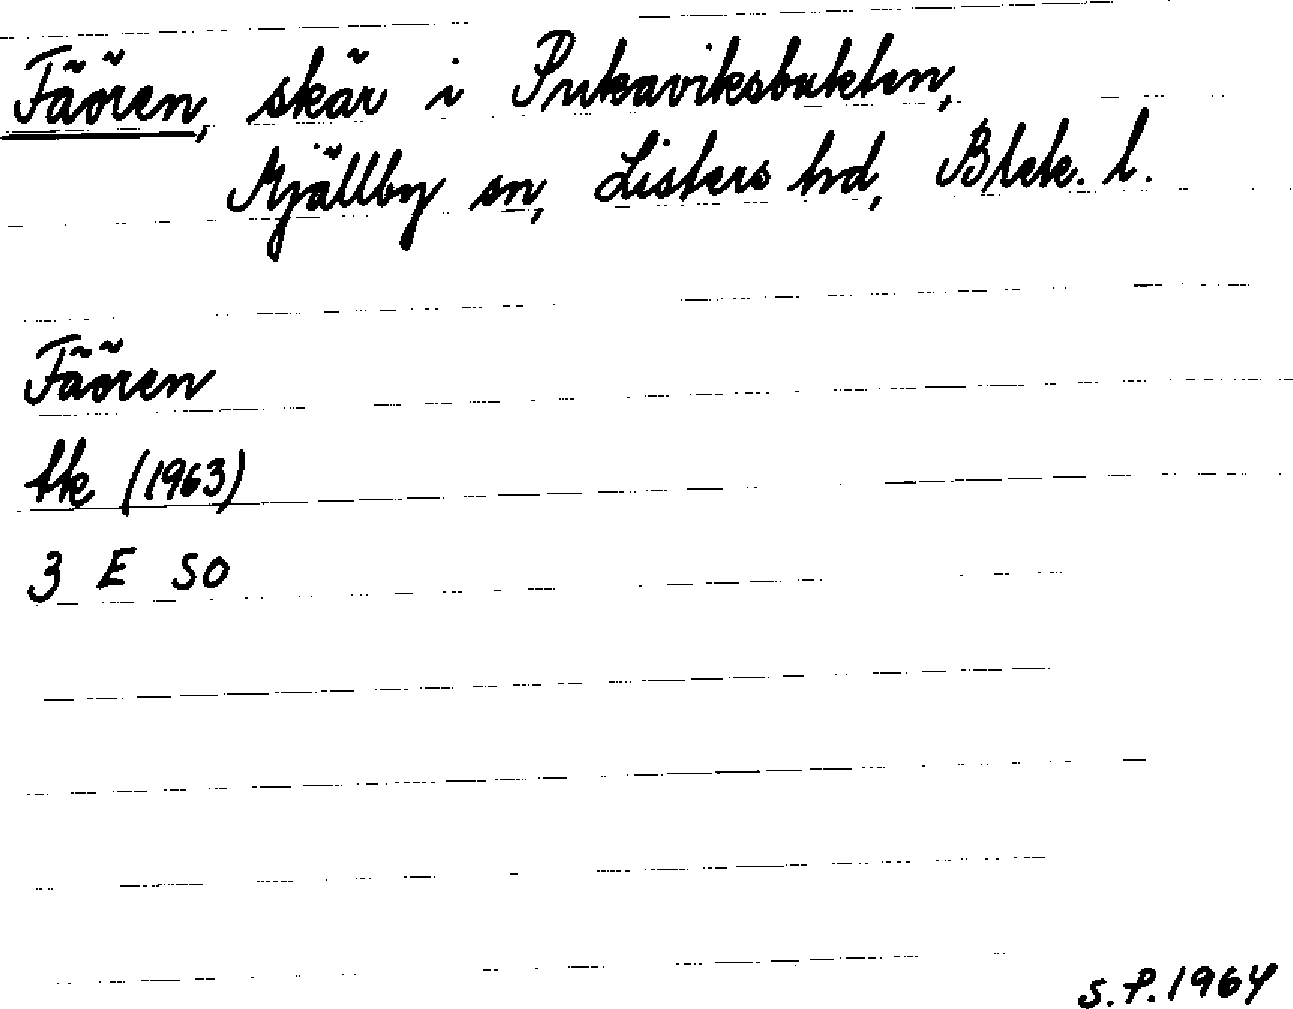 Fäören, skär i Pukaviksbukten,
Mjällby sn, Listers hd, Blek. l.
Fäören
tk (1963)
3 E SO
S.P. 1964